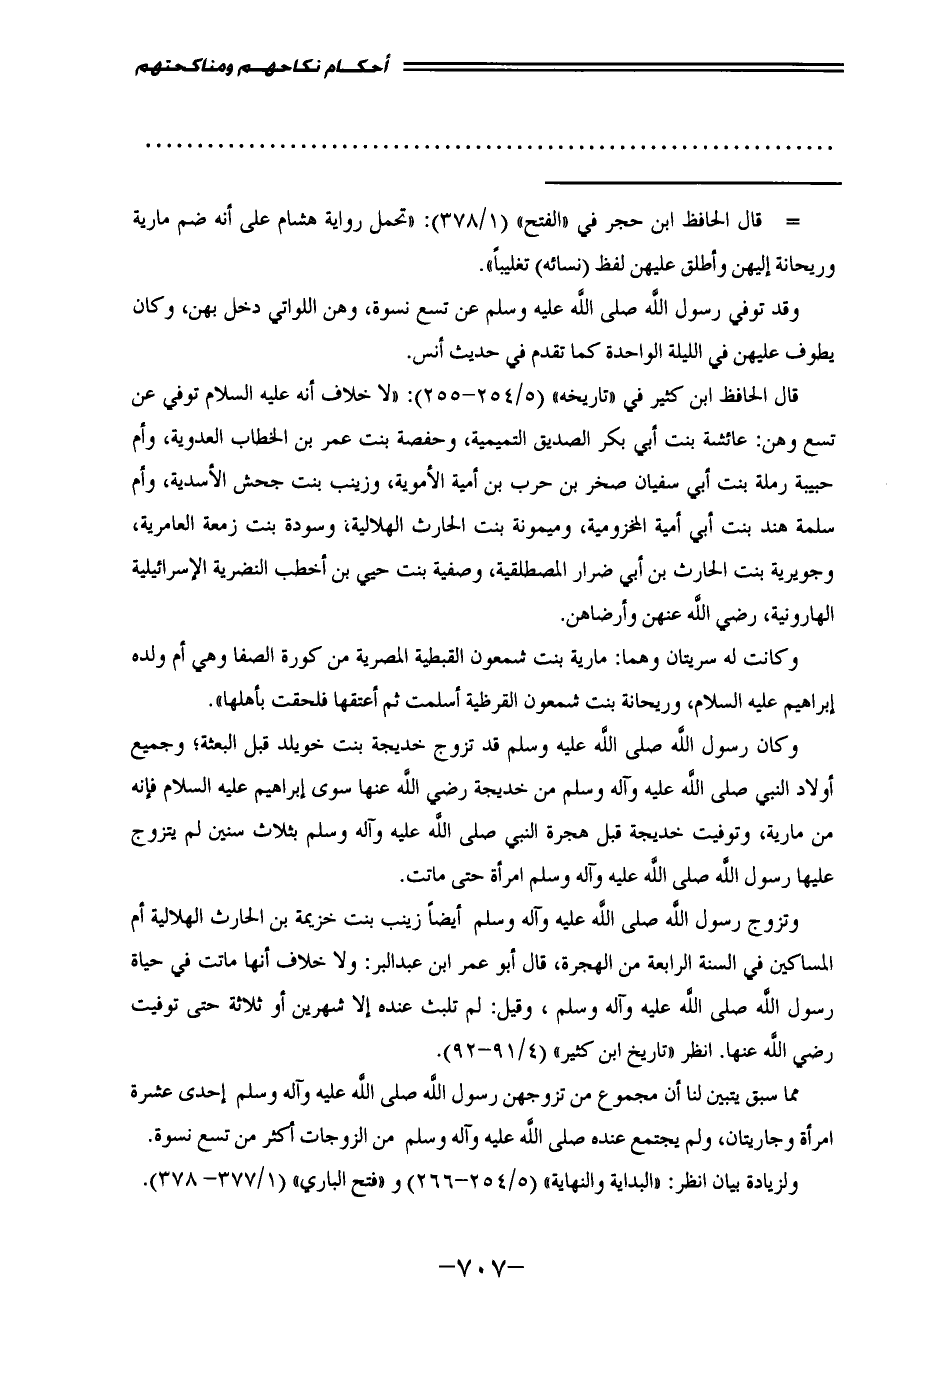 أحكــام نكاحهــم ومناكحتهم
= قال الحافظ ابن حجر في «الفتح» (٣٧٨/١): «تحمل رواية هشام على أنه ضم مارية
وريحانة إليهن وأطلق عليهن لفظ (نسائه) تغليباً».
وقد توفي رسول اللَّه صلى اللَّه عليه وسلم عن تسع نسوة، وهن اللواتي دخل بهن، وكان
يطوف عليهن في الليلة الواحدة كما تقدم في حديث أنس.
قال الحافظ ابن كثير في «تاريخه» (٢٥٤/٥-٢٥٥): «لا خلاف أنه عليه السلام توفي عن
تسع وهن: عائشة بنت أبي بكر الصديق التميمية، وحفصة بنت عمر بن الخطاب العدوية، وأم
حبيبة رملة بنت أبي سفيان صخر بن حرب بن أمية الأموية، وزينب بنت جحش الأسدية، وأم
سلمة هند بنت أبي أمية المخزومية، وميمونة بنت الحارث الهلالية، وسودة بنت زمعة العامرية،
وجويرية بنت الحارث بن أبي ضرار المصطلقية، وصفية بنت حيي بن أخطب النضرية الإسرائيلية
الهارونية، رضي اللَّه عنهن وأرضاهن.
وكانت له سريتان وهما: مارية بنت شمعون القبطية المصرية من كورة الصفا وهي أم ولده
إبراهيم عليه السلام، وريحانة بنت شمعون القرظية أسلمت ثم أعتقها فلحقت بأهلها».
وكان رسول اللَّه صلى اللَّه عليه وسلم قد تزوج خديجة بنت خويلد قبل البعثة؛ وجميع
أولاد النبي صلى اللَّه عليه وآله وسلم من خديجة رضي اللَّه عنها سوى إبراهيم عليه السلام فإنه
من مارية، وتوفيت خديجة قبل هجرة النبي صلى اللَّه عليه وآله وسلم بثلاث سنين لم يتزوج
عليها رسول اللَّه صلى اللَّه عليه وآله وسلم امرأة حتى ماتت.
وتزوج رسول اللَّه صلى اللَّه عليه وآله وسلم أيضاً زينب بنت خزيمة بن الحارث الهلالية أم
المساكين في السنة الرابعة من الهجرة، قال أبو عمر ابن عبدالبر: ولا خلاف أنها ماتت في حياة
رسول اللَّه صلى اللَّه عليه وآله وسلم ، وقيل: لم تلبث عنده إلا شهرين أو ثلاثة حتى توفيت
رضي اللَّه عنها. انظر «تاريخ ابن كثير» (٩١/٤-٩٢).
مما سبق يتبين لنا أن مجموع من تزوجهن رسول اللَّه صلى اللَّه عليه وآله وسلم إحدى عشرة
امرأة وجاريتان، ولم يجتمع عنده صلى اللَّه عليه وآله وسلم من الزوجات أكثر من تسع نسوة.
ولزيادة بيان انظر: «البداية والنهاية» (٢٥٤/٥-٢٦٦) و «فتح الباري» (٣٧٧/١- ٣٧٨).
-٧٠٧-